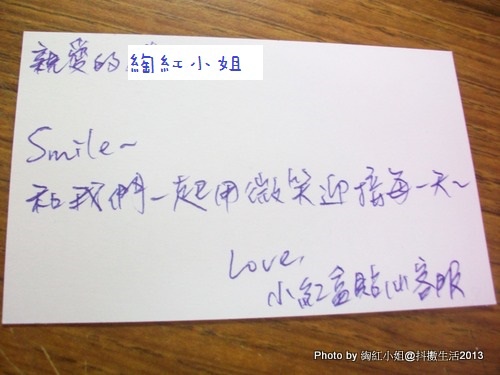 親愛的 綯紅小姐
Smile~
和我們一起用微笑迎接每一天~
Love,
小紅盒貼心客服
Photo by 綯紅小姐@抖擻生活2013